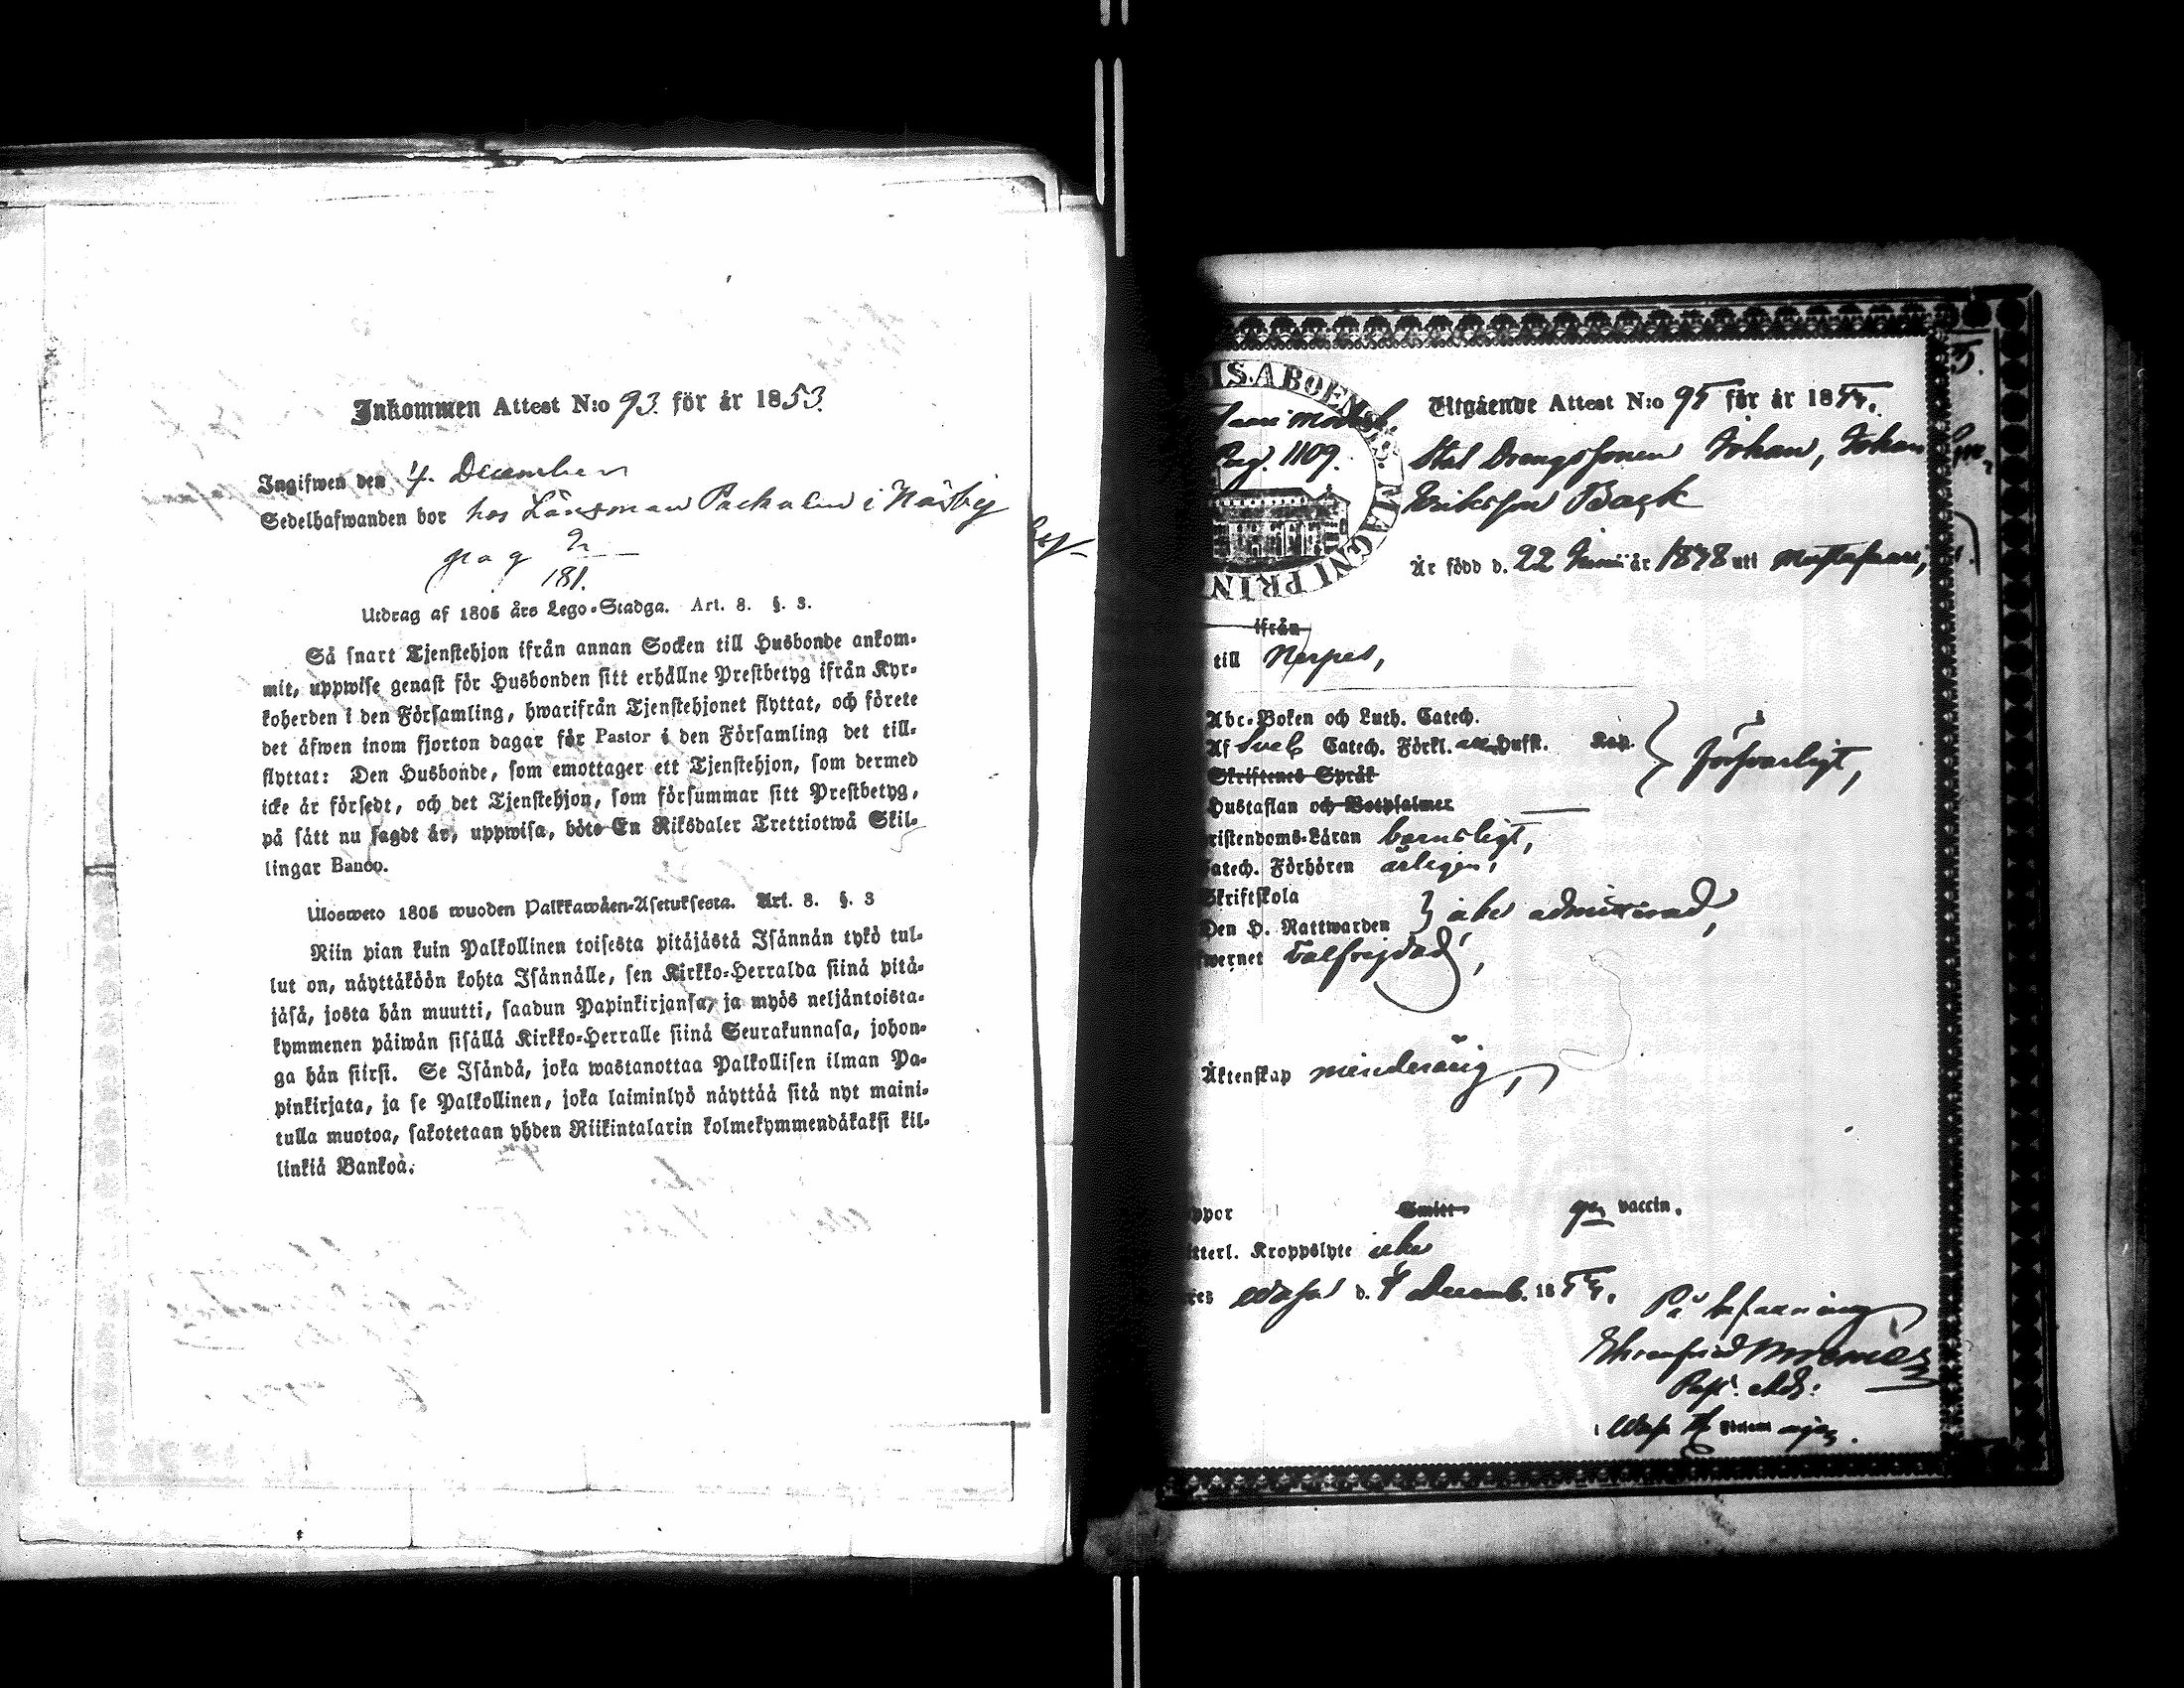 Inkommen Attest N:o 93. för år 1853.
Ingifwen den 4. December
Sedelhafwanden bor hos Länsman Packalen i Näsby
pag 181.
Utdrag af 1805 års Lego-Stadga. Art. 8. §. 3.
Så snart Tjenstehjon ifrån annan Socken till Husbonde ankom-
mit, uppwise genast för Husbonden sitt erhållne Prestbetyg ifrån Kyr-
koherden i den Församling, hwarifrån Tjenstehjonet flyttat, och förete
det äfwen inom fjorton dagar för Pastor i den Församling det till-
flyttat: Den Husbonde, som emottager ett Tjenstehjon, som dermed
icke är försedt, och det Tjenstehjon, som försummar sitt Prestbetyg,
på sätt nu sagdt är, uppwisa, böte En Riksdaler Trettiotwå Skil-
lingar Banco.
Ulosweto 1805 wuoden Palkkawäen-Asetuksesta. Art. 8. §. 3
Niin pian kuin Palkollinen toisesta pitäjästä Isännän tykö tul-
lut on, näyttäköön kohta Isännälle, sen Kirkko-Herralda siinä pitä-
jäsä, josta hän muutti, saadun Papinkirjansa, ja myös neljäntoista-
kymmenen päiwän sisällä Kirkko-Herralle siinä Seurakunnasa, johon-
ga hän siirsi. Se Isändä, joka wastanottaa Palkollisen ilman Pa-
pinkirjata, ja se Palkollinen, joka laiminlyö näyttää sitä nyt maini-
tulla muotoa, sakotetaan yhden Riikintalarin kolmekymmendäkaksi kil-
linkiä Bankoa.
IS. ABOENS. MAGNI PRIN
Pag. 1109.
Utgående Attest N:o 95 för år 1855.
Drengsonen Johan, Johan
Eriksson Back
Är född d. 22 Junii år 1848 uti Mustasaari,
ifrån
till Nerpes,
Abc-Boken och Luth. Catech.
Af Sveb. Catech. Förkl. Hufst. Kap. försvarligt,
Skriftenes Språk
Hustaflan och Botpsalmer
ristendoms-Läran barnsligt,
atech. Förhören årligen,
Skriftskola
Den H. Nattwarden } icke admitterad,
wernet välfrejdad,
Äktenskap minderårig,
ppor Smitt- gen vaccin.
tterl. Kroppslyte icke
res Wasa d. 4 Decemb. 1855.
På befallning
Ehrenfried
Past. Adj:
i Wasa